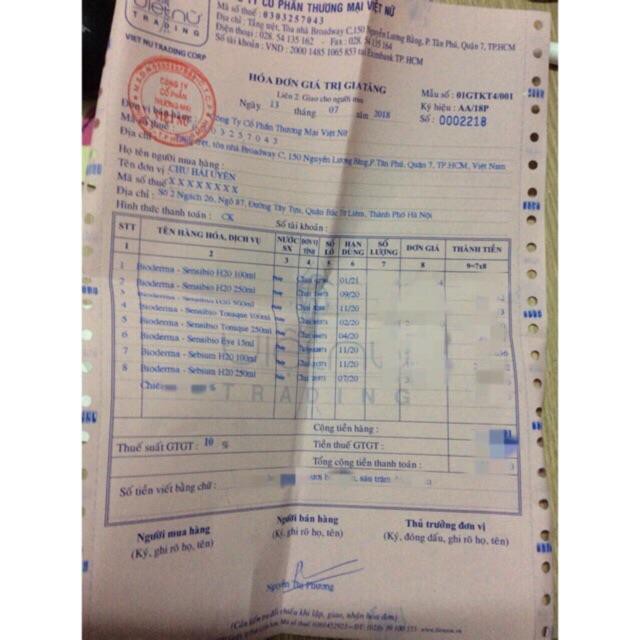 VIỆT NỮ
TRADING
VIET NU TRADING CORP
CÔNG TY CỔ PHẦN THƯƠNG MẠI VIỆT NỮ
Mã số thuế : 0303257043
Địa chỉ : Tầng trệt, Tòa nhà Broadway C,150 Nguyễn Lương Bằng, P. Tân Phú, Quận 7, TP.HCM
Điện thoại : 028. 54 135 162 - Fax : 028. 54 135 164
Số tài khoản : VND : 2000 1485 1065 853 tại Eximbank TP.HCM
HÓA ĐƠN GIÁ TRỊ GIA TĂNG
Liên 2: Giao cho người mua
Ngày 13 tháng 07 năm 2018
Mẫu số : 01GTKT4/001
Ký hiệu : AA/18P
Số : 0002218
CÔNG TY
CỔ PHẦN
THƯƠNG MẠI
VIỆT NỮ
Đơn vị bán hàng : Công Ty Cổ Phần Thương Mại Việt Nữ
Mã số thuế : 0303257043
Địa chỉ : Tầng trệt, tòa nhà Broadway C, 150 Nguyễn Lương Bằng,P.Tân Phú, Quận 7, TP.HCM, Việt Nam
Họ tên người mua hàng :
Tên đơn vị CHU HẢI UYÊN
Mã số thuế XXXXXXXX
Địa chỉ : Số 2 Ngách 26, Ngõ 87, Đường Tây Tựu, Quận Bắc Từ Liêm, Thành Phố Hà Nội
Hình thức thanh toán : CK Số tài khoản :
STT TÊN HÀNG HÓA, DỊCH VỤ NƯỚC SX ĐƠN VỊ TÍNH SỐ LÔ HẠN DÙNG SỐ LƯỢNG ĐƠN GIÁ THÀNH TIỀN
1 2 3 4 5 6 7 8 9=7x8
1 Bioderma - Sensibio H20 100ml 01/21
2 Bioderma - Sensibio H20 250ml 09/20
3 Bioderma - Sensibio H20 500ml 11/20
4 Bioderma - Sensibio Tonique 100ml 02/20
5 Bioderma - Sensibio Tonique 250ml 04/20
6 Bioderma - Sensibio Eye 15ml 11/20
7 Bioderma - Sebium H20 100ml 11/20
8 Bioderma - Sebium H20 250ml 07/20
TRADING
Cộng tiền hàng :
Thuế suất GTGT : 10 % Tiền thuế GTGT :
Tổng cộng tiền thanh toán :
Số tiền viết bằng chữ :
Người mua hàng
(Ký, ghi rõ họ, tên)
Người bán hàng
(Ký, ghi rõ họ, tên)
Thủ trưởng đơn vị
(Ký, đóng dấu, ghi rõ họ, tên)
Nguyễn Thị Phương
(Cần kiểm tra đối chiếu khi lập, giao, nhận hóa đơn)